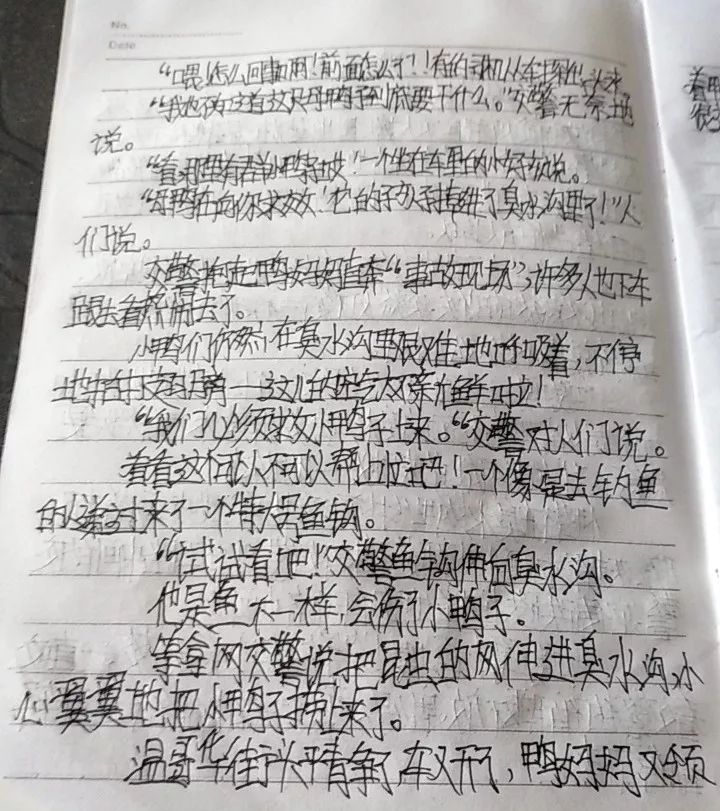 No.
Date.
“喂!怎么回事啊!前面怎么了!”有的司机从车探出头来。
“我也不知道这只母鸭子到底要干什么。”交警无奈地
说。
“看,那里有群小鸭子哎!”一个坐在车里的小女孩说。
“母鸭在向你求救!它的孩子掉进了臭水沟里了!”人
们说。
交警抱起鸭妈妈直奔“事故现场”,许多人也下车
跟去看热闹去了。
小鸭们仍然在臭水沟里艰难地呼吸着,不停
地拍打翅膀——这儿的空气太新鲜啦!
“我们必须救小鸭子上来。”交警对人们说。
看看这个可以不可以帮上忙吧!一个像是去钓鱼
的人递过来了一个特大号鱼钩。
“试试看吧!”交警鱼钩伸向臭水沟。
他是鱼 不一样,会伤了小鸭子。
等拿网交警说把昆虫的网伸进臭水沟,小
心翼翼地把小鸭子捞上来了。
温哥华街头平静了,车又开了,鸭妈妈又领
着鸭